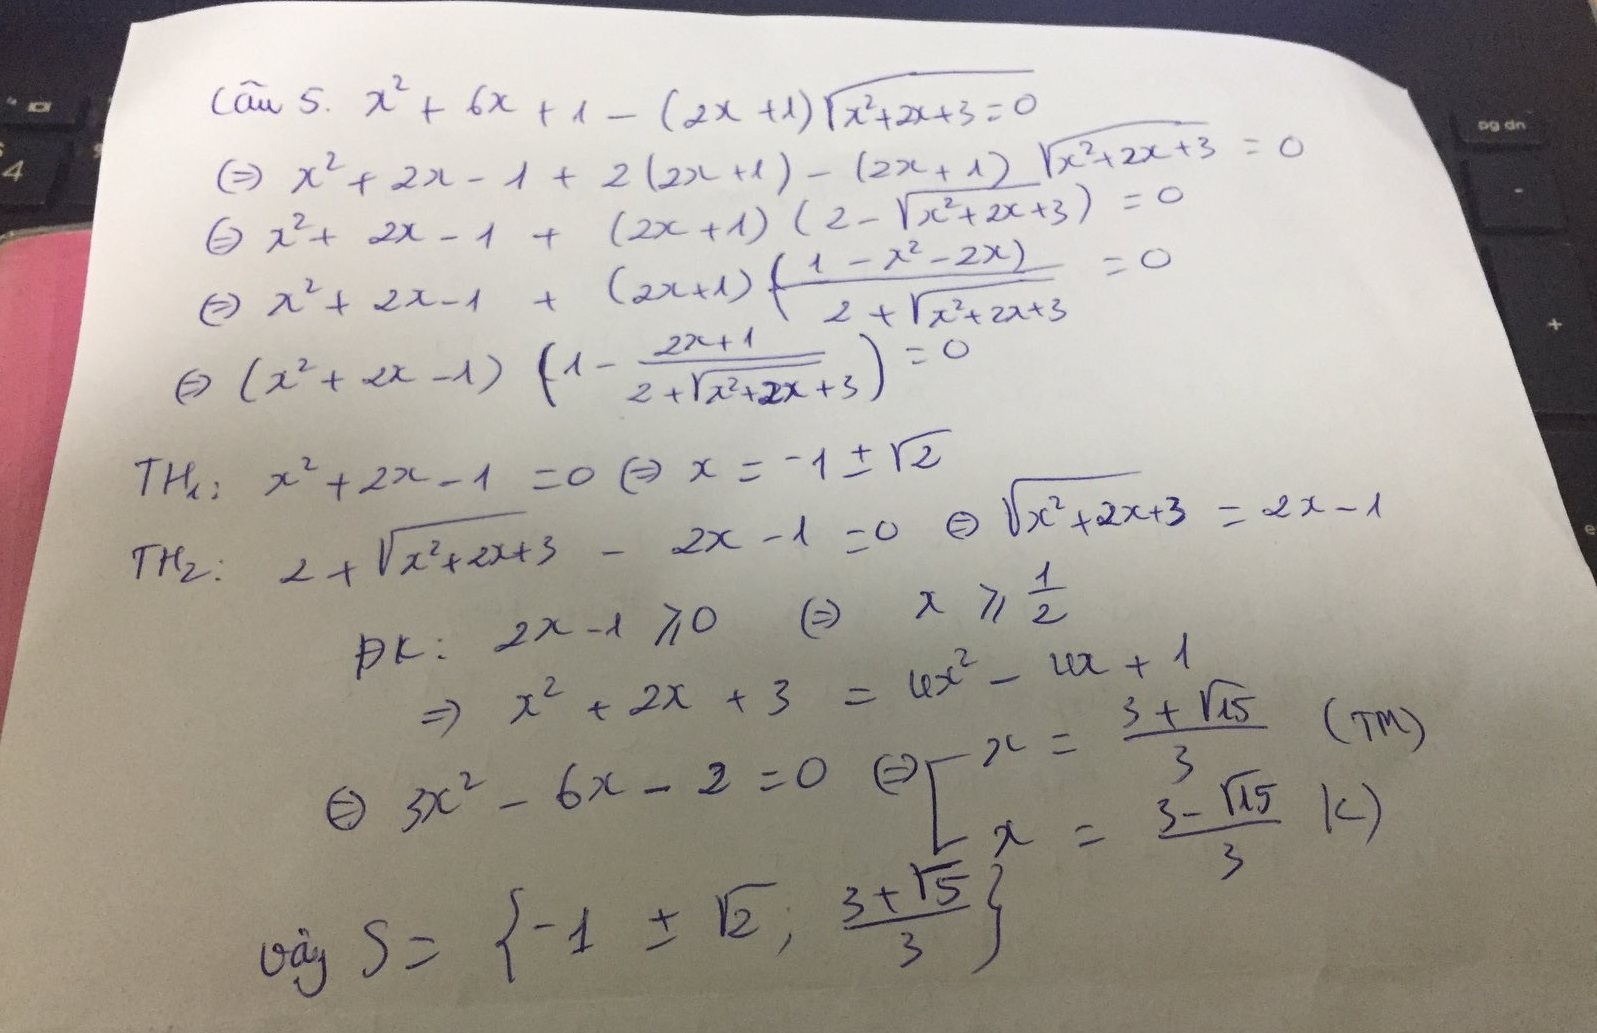 Câu 5. x² + 6x + 1 - (2x + 1)√(x²+2x+3) = 0
⇔ x² + 2x - 1 + 2(2x+1) - (2x+1) √(x²+2x+3) = 0
⇔ x² + 2x - 1 + (2x+1) (2 - √(x²+2x+3)) = 0
⇔ x² + 2x - 1 + (2x+1) ((1 - x² - 2x)/(2 + √(x²+2x+3))) = 0
⇔ (x² + 2x - 1) (1 - (2x+1)/(2 + √(x²+2x+3))) = 0
TH₁: x² + 2x - 1 = 0 ⇔ x = -1 ± √2
TH₂: 2 + √(x²+2x+3) - 2x - 1 = 0 ⇔ √(x²+2x+3) = 2x - 1
ĐK: 2x - 1 ⩾ 0 ⇔ x ⩾ 1/2
⇒ x² + 2x + 3 = 4x² - 4x + 1
⇔ 3x² - 6x - 2 = 0 ⇔ [ x = (3 + √15)/3 (TM)
x = (3 - √15)/3 K)
vậy S = {-1 ± √2; (3 + √5)/3}
pg dn
4
-
+
e